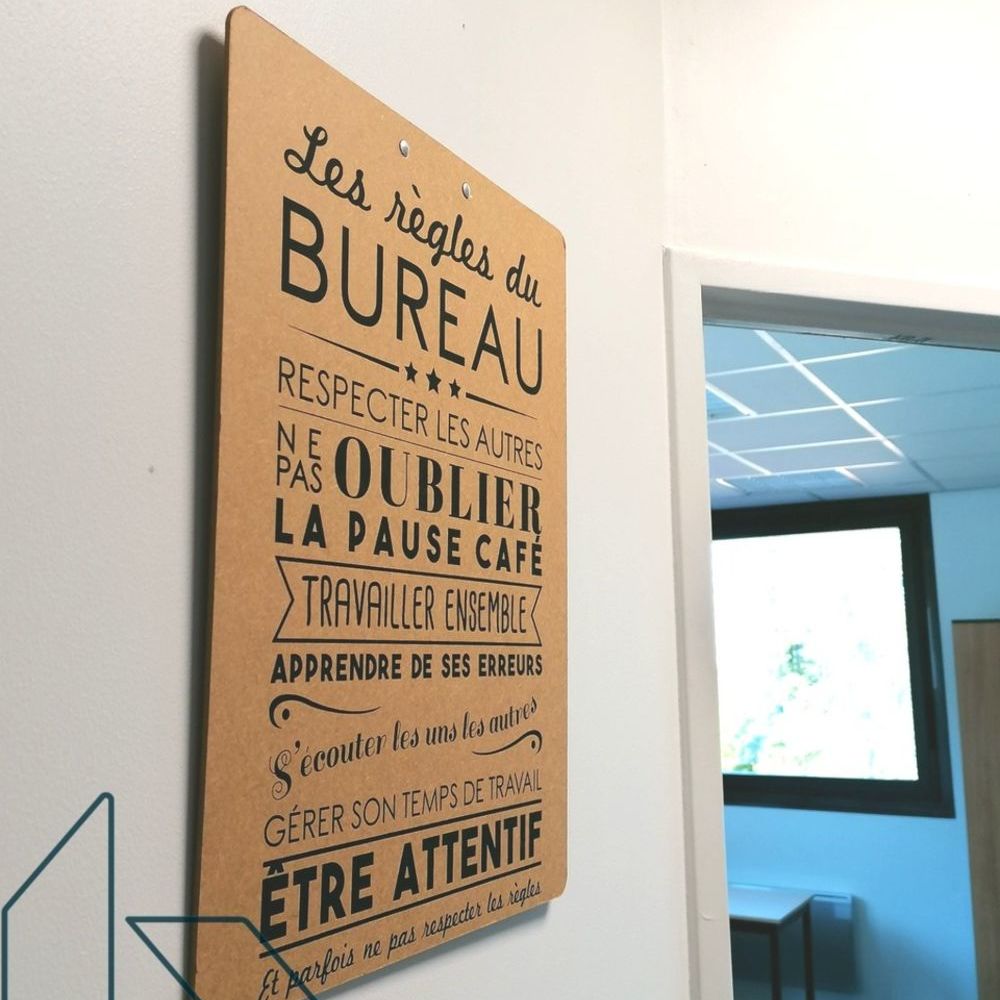 Les règles du
BUREAU
RESPECTER LES AUTRES
NE PAS OUBLIER
LA PAUSE CAFÉ
TRAVAILLER ENSEMBLE
APPRENDRE DE SES ERREURS
S'écouter les uns les autres
GÉRER SON TEMPS DE TRAVAIL
ÊTRE ATTENTIF
Et parfois ne pas respecter les règles